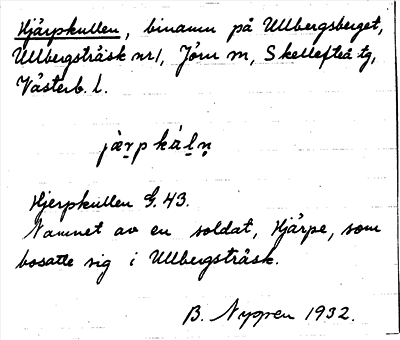 Hjärpkullen, binamn på Ullbergsberget,
Ullbergsträsk nr 1, Jörn sn, Skellefteå tg,
Västerb. l.
Hjerpkullen G. 43.
Namnet av en soldat, Hjärpe, som
bosatte sig i Ullbergsträsk.
B. Nyppen 1932.